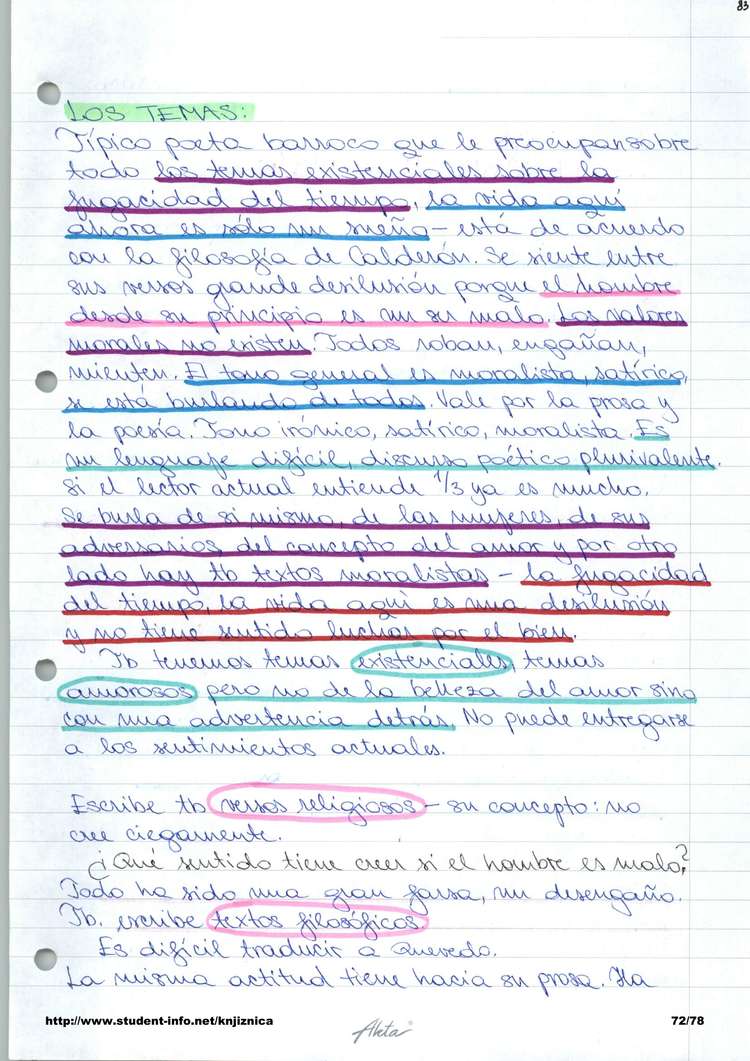 83
LOS TEMAS:
Típico poeta barroco que le preocupan sobre
todo los temas existenciales sobre la
fugacidad del tiempo, la vida aquí
ahora es sólo un sueño - está de acuerdo
con la filosofía de Calderón. Se siente entre
sus versos grande desilusión porque el hombre
desde su principio es un ser malo. Los valores
morales no existen. Todos roban, engañan,
mienten. El tono general es moralista, satírico,
se está burlando de todos. Vale por la prosa y
la poesía. Tono irónico, satírico, moralista. Es
un lenguaje difícil, discurso poético plurivalente.
Si el lector actual entiende 1/3 ya es mucho.
Se burla de sí mismo, de las mujeres, de sus
adversarios, del concepto del amor y por otro
lado hay tb textos moralistas - la fugacidad
del tiempo, la vida aquí es una desilusión
y no tiene sentido luchar por el bien.
Tb tenemos temas existenciales, temas
amorosos pero no de la belleza del amor sino
con una advertencia detrás. No puede entregarse
a los sentimientos actuales.
Escribe tb versos religiosos - su concepto: no
cree ciegamente.
¿Qué sentido tiene creer si el hombre es malo?
Todo ha sido una gran farsa, un desengaño.
Tb. escribe textos filosóficos.
Es difícil traducir a Quevedo.
La misma actitud tiene hacia su prosa. Ha
http://www.student-info.net/knjiznica
Akta
72/78